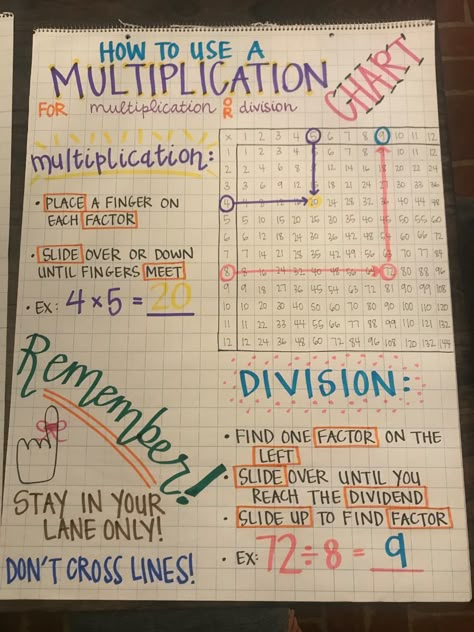 HOW TO USE A
MULTIPLICATION
CHART
FOR multiplication OR division
multiplication:
• PLACE A FINGER ON
EACH FACTOR
• SLIDE OVER OR DOWN
UNTIL FINGERS MEET
• EX: 4 × 5 = 20
x 1 2 3 4 5 6 7 8 9 10 11 12
1 1 2 3 4 5 6 7 8 9 10 11 12
2 2 4 6 8
3 3 6 9 12
4
5 5 10 15 20 25 30 35 40 45 50 55 60
6 6 12 18 24 30 36 42 48 60 66 72
7 7 14 21 28 35 42 49 56 70 77 84
8 72 80 88 96
9 9 18 27 36 45 54 63 72 81 90 99 108
10 10 20 30 40 50 60 70 80 90 100 110 120
11 11 22 33 44 55 66 77 88 99 110 121 132
12 12 24 36 48 60 72 84 96 108 120 132 144
Remember!
STAY IN YOUR
LANE ONLY!
DON'T CROSS LINES!
DIVISION:
• FIND ONE FACTOR ON THE
LEFT
• SLIDE OVER UNTIL YOU
REACH THE DIVIDEND
• SLIDE UP TO FIND FACTOR
• EX: 72 ÷ 8 = 9